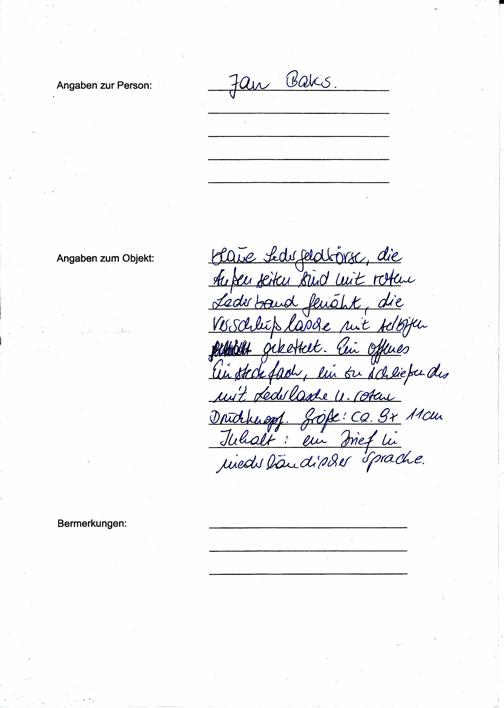 Angaben zur Person:
Jan Baks.
Angaben zum Objekt:
blaue Ledergeldbörse, die
Außenseiten sind mit rotem
Lederband genäht, die
Verschlußlasche mit
gekettet. Ein offenes
Einsteckfach, ein zu schließendes
mit Lederlasche u. rotem
Druckknopf. Größe: ca. 9x 11cm
Inhalt: ein Brief in
niederländischer Sprache.
Bermerkungen: